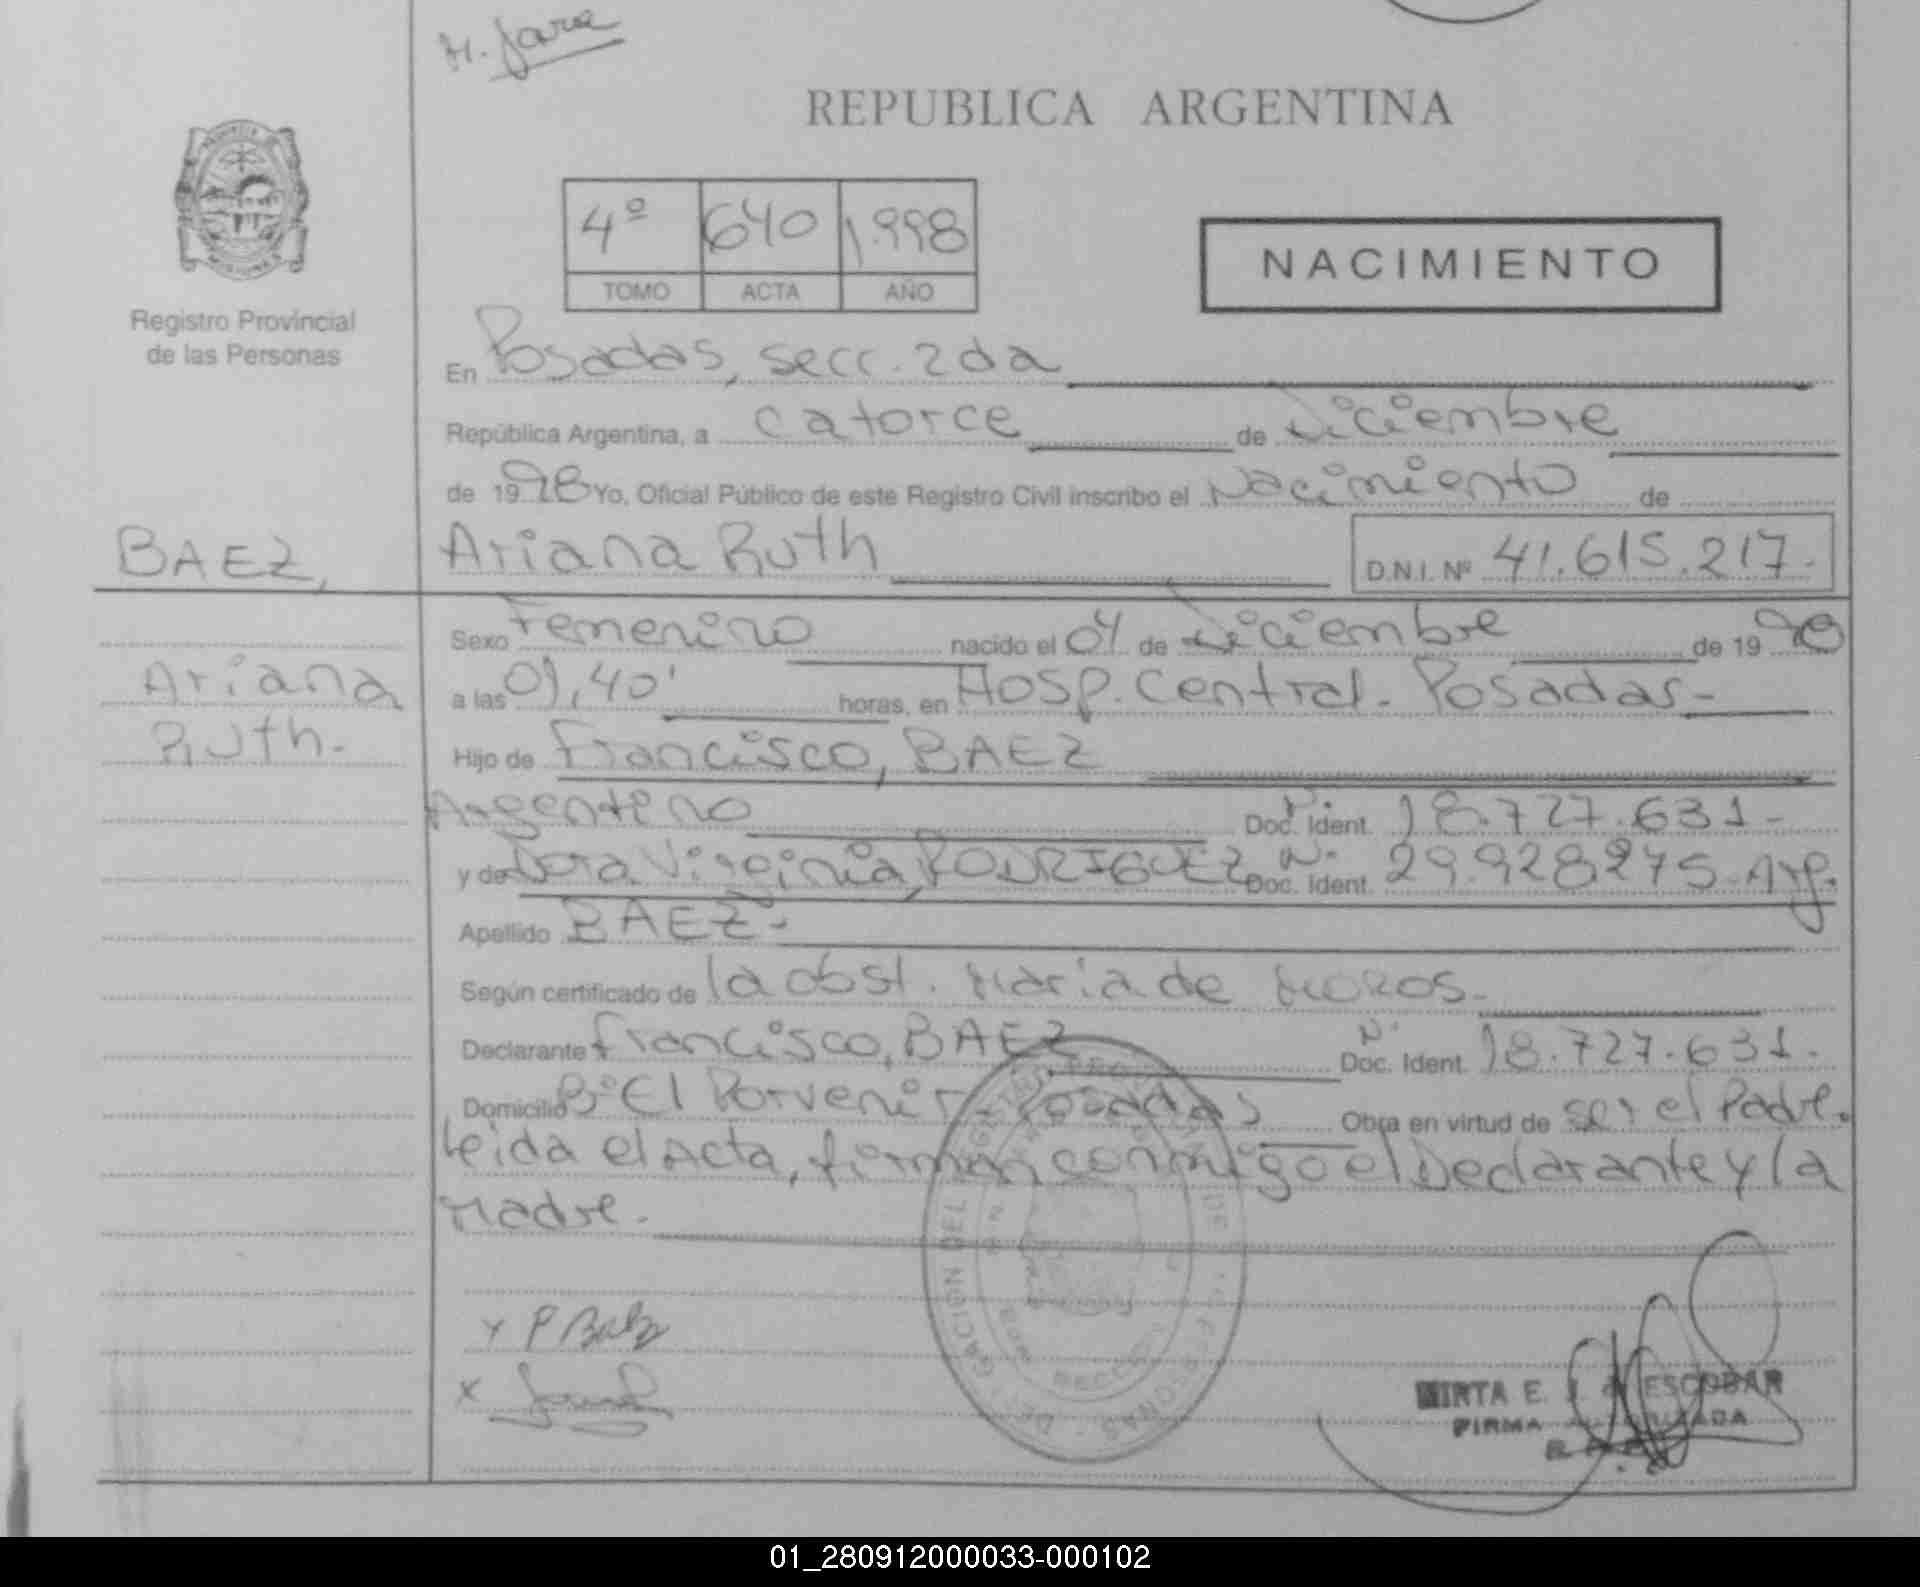 H. Jara
REPUBLICA ARGENTINA
4º 640 1.998
TOMO ACTA AÑO
NACIMIENTO
Registro Provincial
de las Personas
En Posadas, secc. 2da
República Argentina, a catorce de Diciembre
de 1998 Yo, Oficial Público de este Registro Civil inscribo el Nacimiento de
BAEZ, Ariana Ruth D.N.I. Nº 41.615.217.
Ariana
Ruth.
Sexo Femenino nacido el 04 de Diciembre de 1998
a las 01,40' horas, en Hosp. Central. Posadas-
Hijo de Francisco, BAEZ
Argentino Doc. Ident. Nº 18.727.631-
y de Dora Virginia, RODRIGUEZ Doc. Ident. Nº 29.928.275. Arg.
Apellido BAEZ-
Según certificado de la obst. Maria de Moros.-
Declarante Francisco, BAEZ Doc. Ident. Nº 18.727.631.
Domicilio Bº El Porvenir - Posadas Obra en virtud de ser el Padre.
Leida el Acta, firman conmigo el Declarante y la
Madre.-
x P Baez
x
MIRTA E. ESCOBAR
FIRMA
01_280912000033-000102